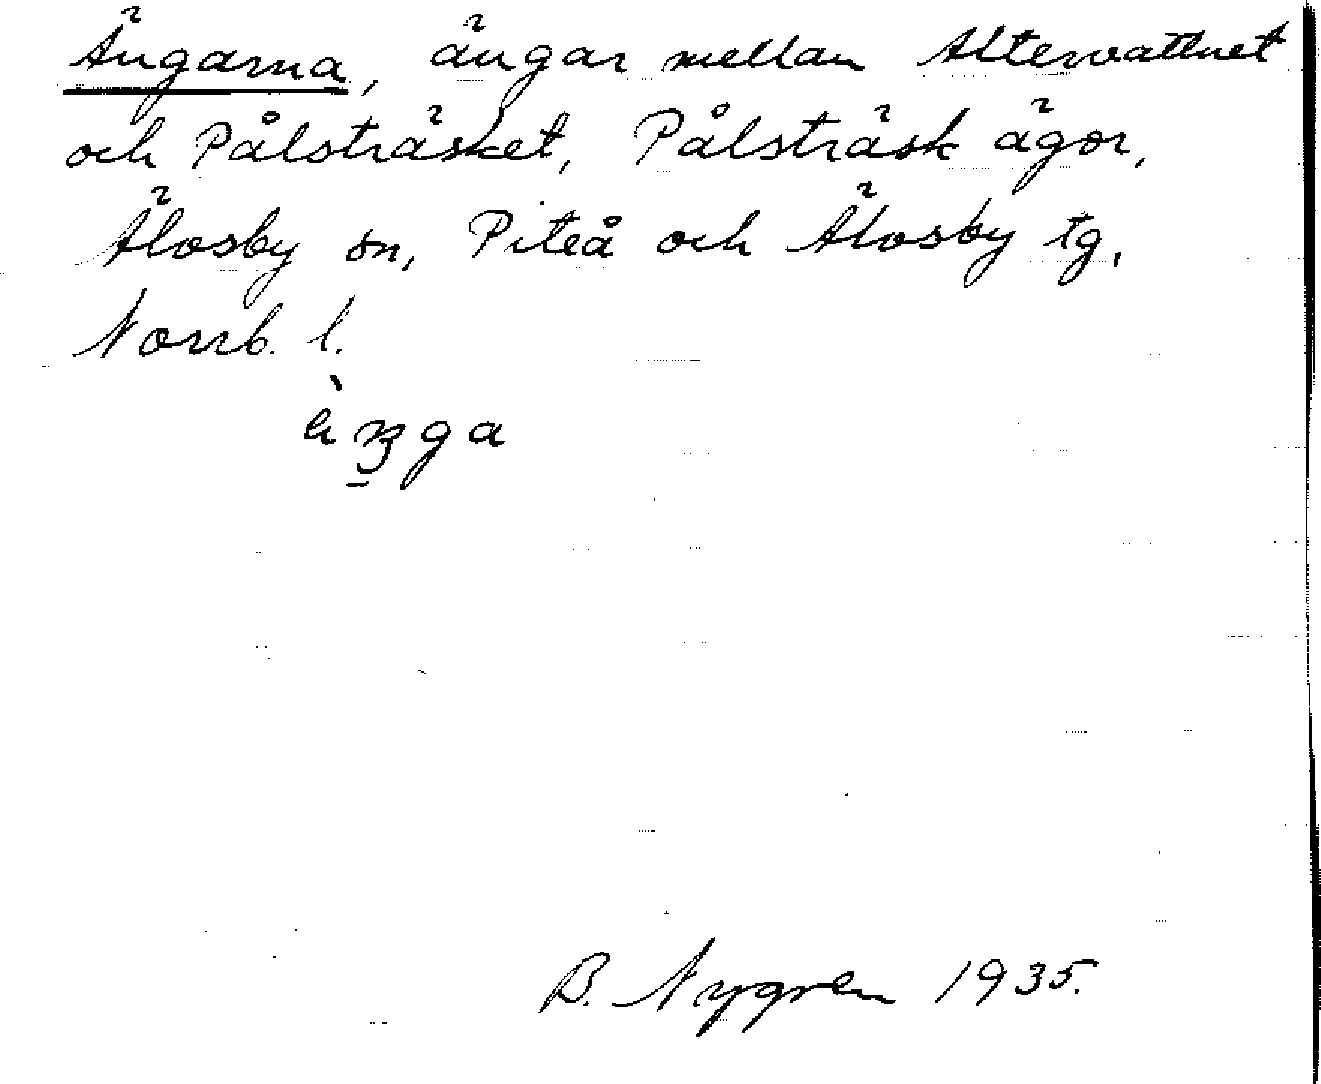 Ängarna, ängar mellan Altervattnet
och Pålsträsket, Pålsträsk ägor,
Älvsby sn, Piteå och Älvsby tg,
Norrb. l.
B. Nygren 1935.